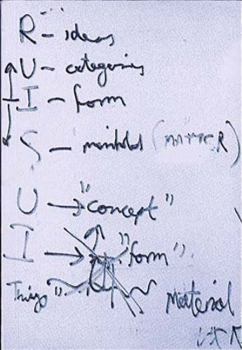 R - ideas
U - categories
I - form
S - manifold (
U → "concept"
I → "form"
Things
Material